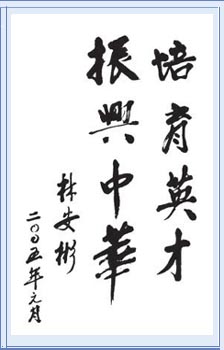 培育英才
振興中華
林安彬
二〇〇五年元月